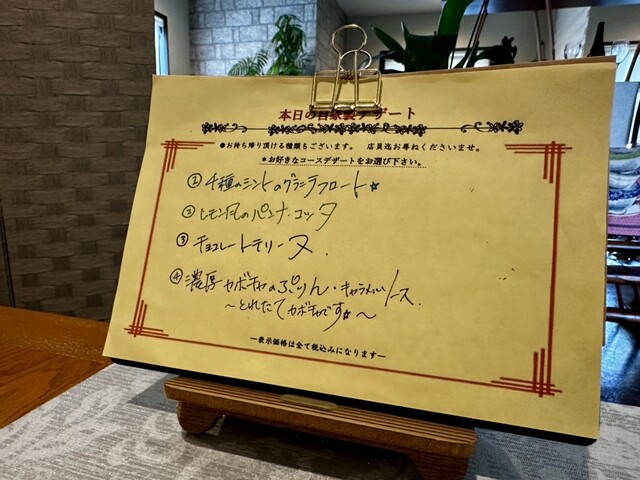 本日の自家製デザート
●お持ち帰り頂ける種類もございます。 店員迄お尋ねくださいませ。
*お好きなコースデザートをお選び下さい。
①千種のミントのグラニテフロート☆
②レモン風のパンナ・コッタ
③チョコレートテリーヌ.
④濃厚カボチャのぷりん・キャラメルソース.
～とれたてカボチャです☆～
ー表示価格は全て税込みになりますー